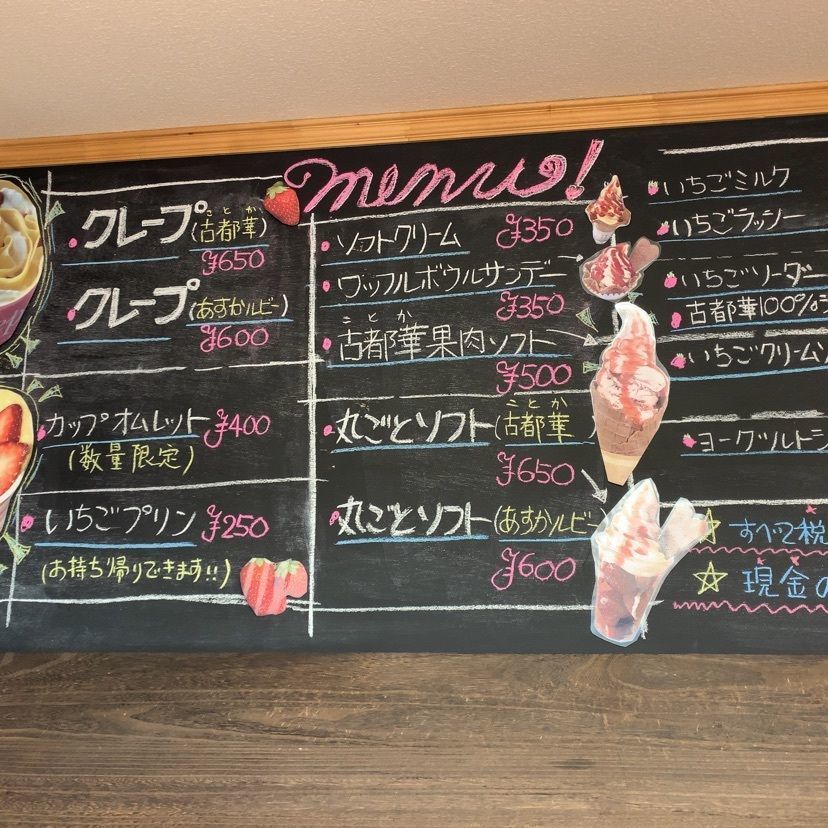 menu!
クレープ(古都華)
ことか
¥650
クレープ(あすかルビー)
¥600
カップオムレット ¥400
(数量限定)
いちごプリン ¥250
(お持ち帰りできます!!)
ソフトクリーム ¥350
ワッフルボウルサンデー
¥350
ことか
古都華果肉ソフト
¥500
ことか
丸ごとソフト(古都華
¥650
丸ごとソフト(あすかルビー
¥600
いちごミルク
いちごラッシー
いちごソーダー
古都華100%
いちごクリームソ
ヨーグルト
すべて税
現金の